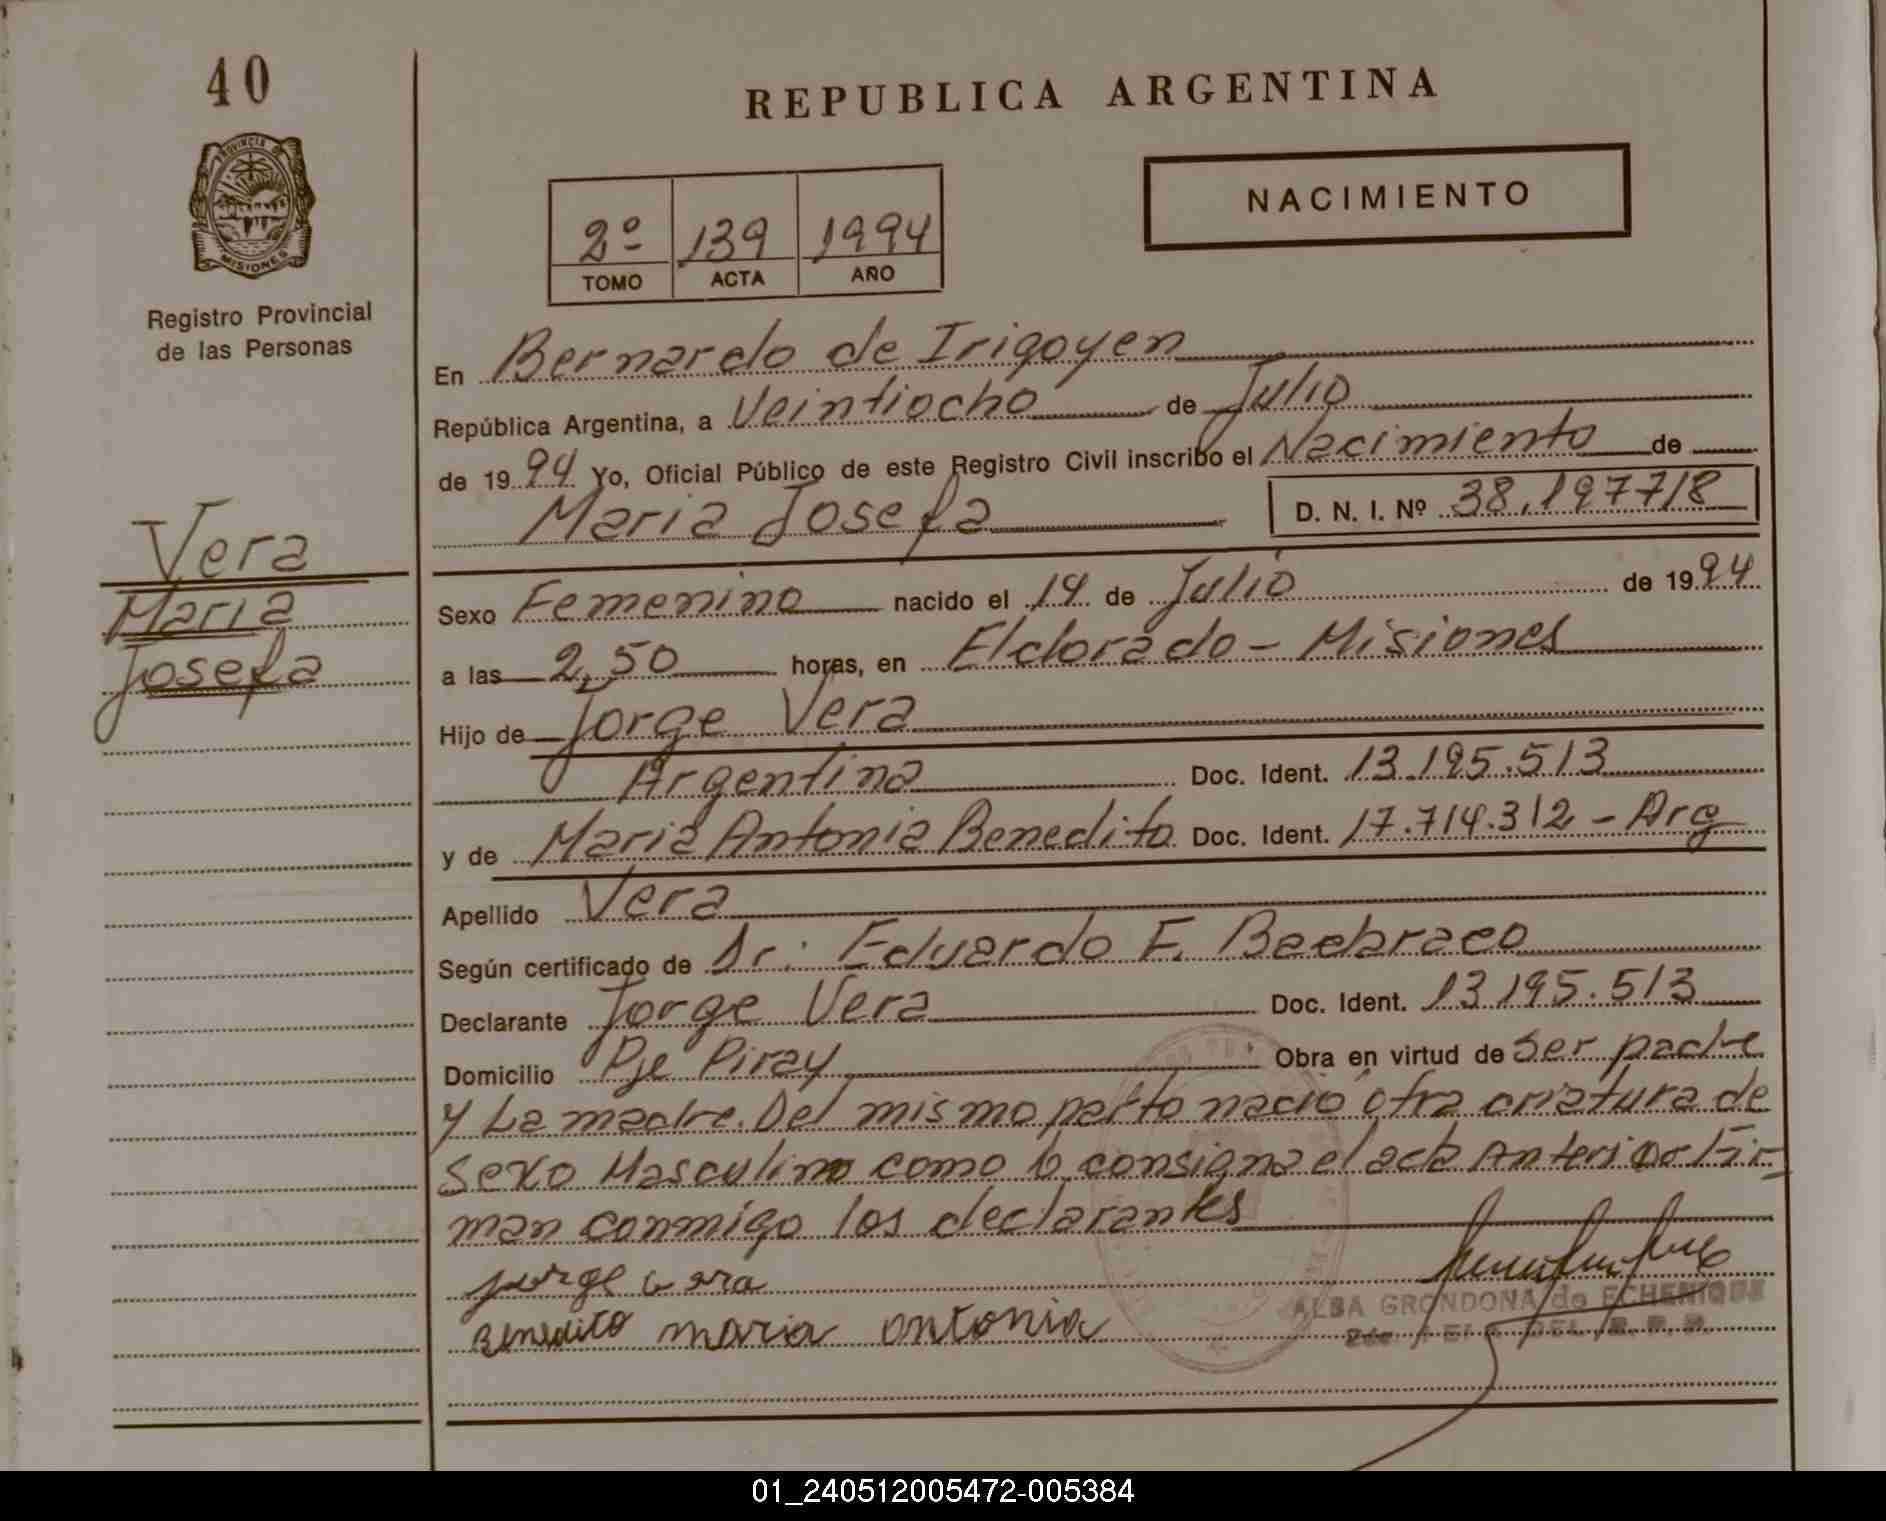 40
REPUBLICA ARGENTINA
PROVINCIA DE
MISIONES
Registro Provincial
de las Personas
2º 139 1994
TOMO ACTA AÑO
NACIMIENTO
Vera
Maria
Josefa
En Bernardo de Irigoyen
República Argentina, a Veintiocho de Julio
de 1994 Yo, Oficial Público de este Registro Civil inscribo el Nacimiento de
Maria Josefa D. N. I. Nº 38.197718
Sexo Femenino nacido el 14 de Julio de 1994
a las 2,50 horas, en Eldorado - Misiones
Hijo de Jorge Vera
Argentina Doc. Ident. 13.195.513
y de Maria Antonia Benedito Doc. Ident. 17.714.312 - Arg
Apellido Vera
Según certificado de Dr: Eduardo F.
Declarante Jorge Vera Doc. Ident. 13.195.513
Domicilio Pje Piray Obra en virtud de Ser padre
y La madre. Del mismo parto nació otra criatura de
sexo Masculino como lo consigna el acta Anterior Fir-
man conmigo los declarantes
jorge vera
Benedito maria antonia
ALBA GRONDONA de ECHENIQUE
DEL R. P. P.
01_240512005472-005384